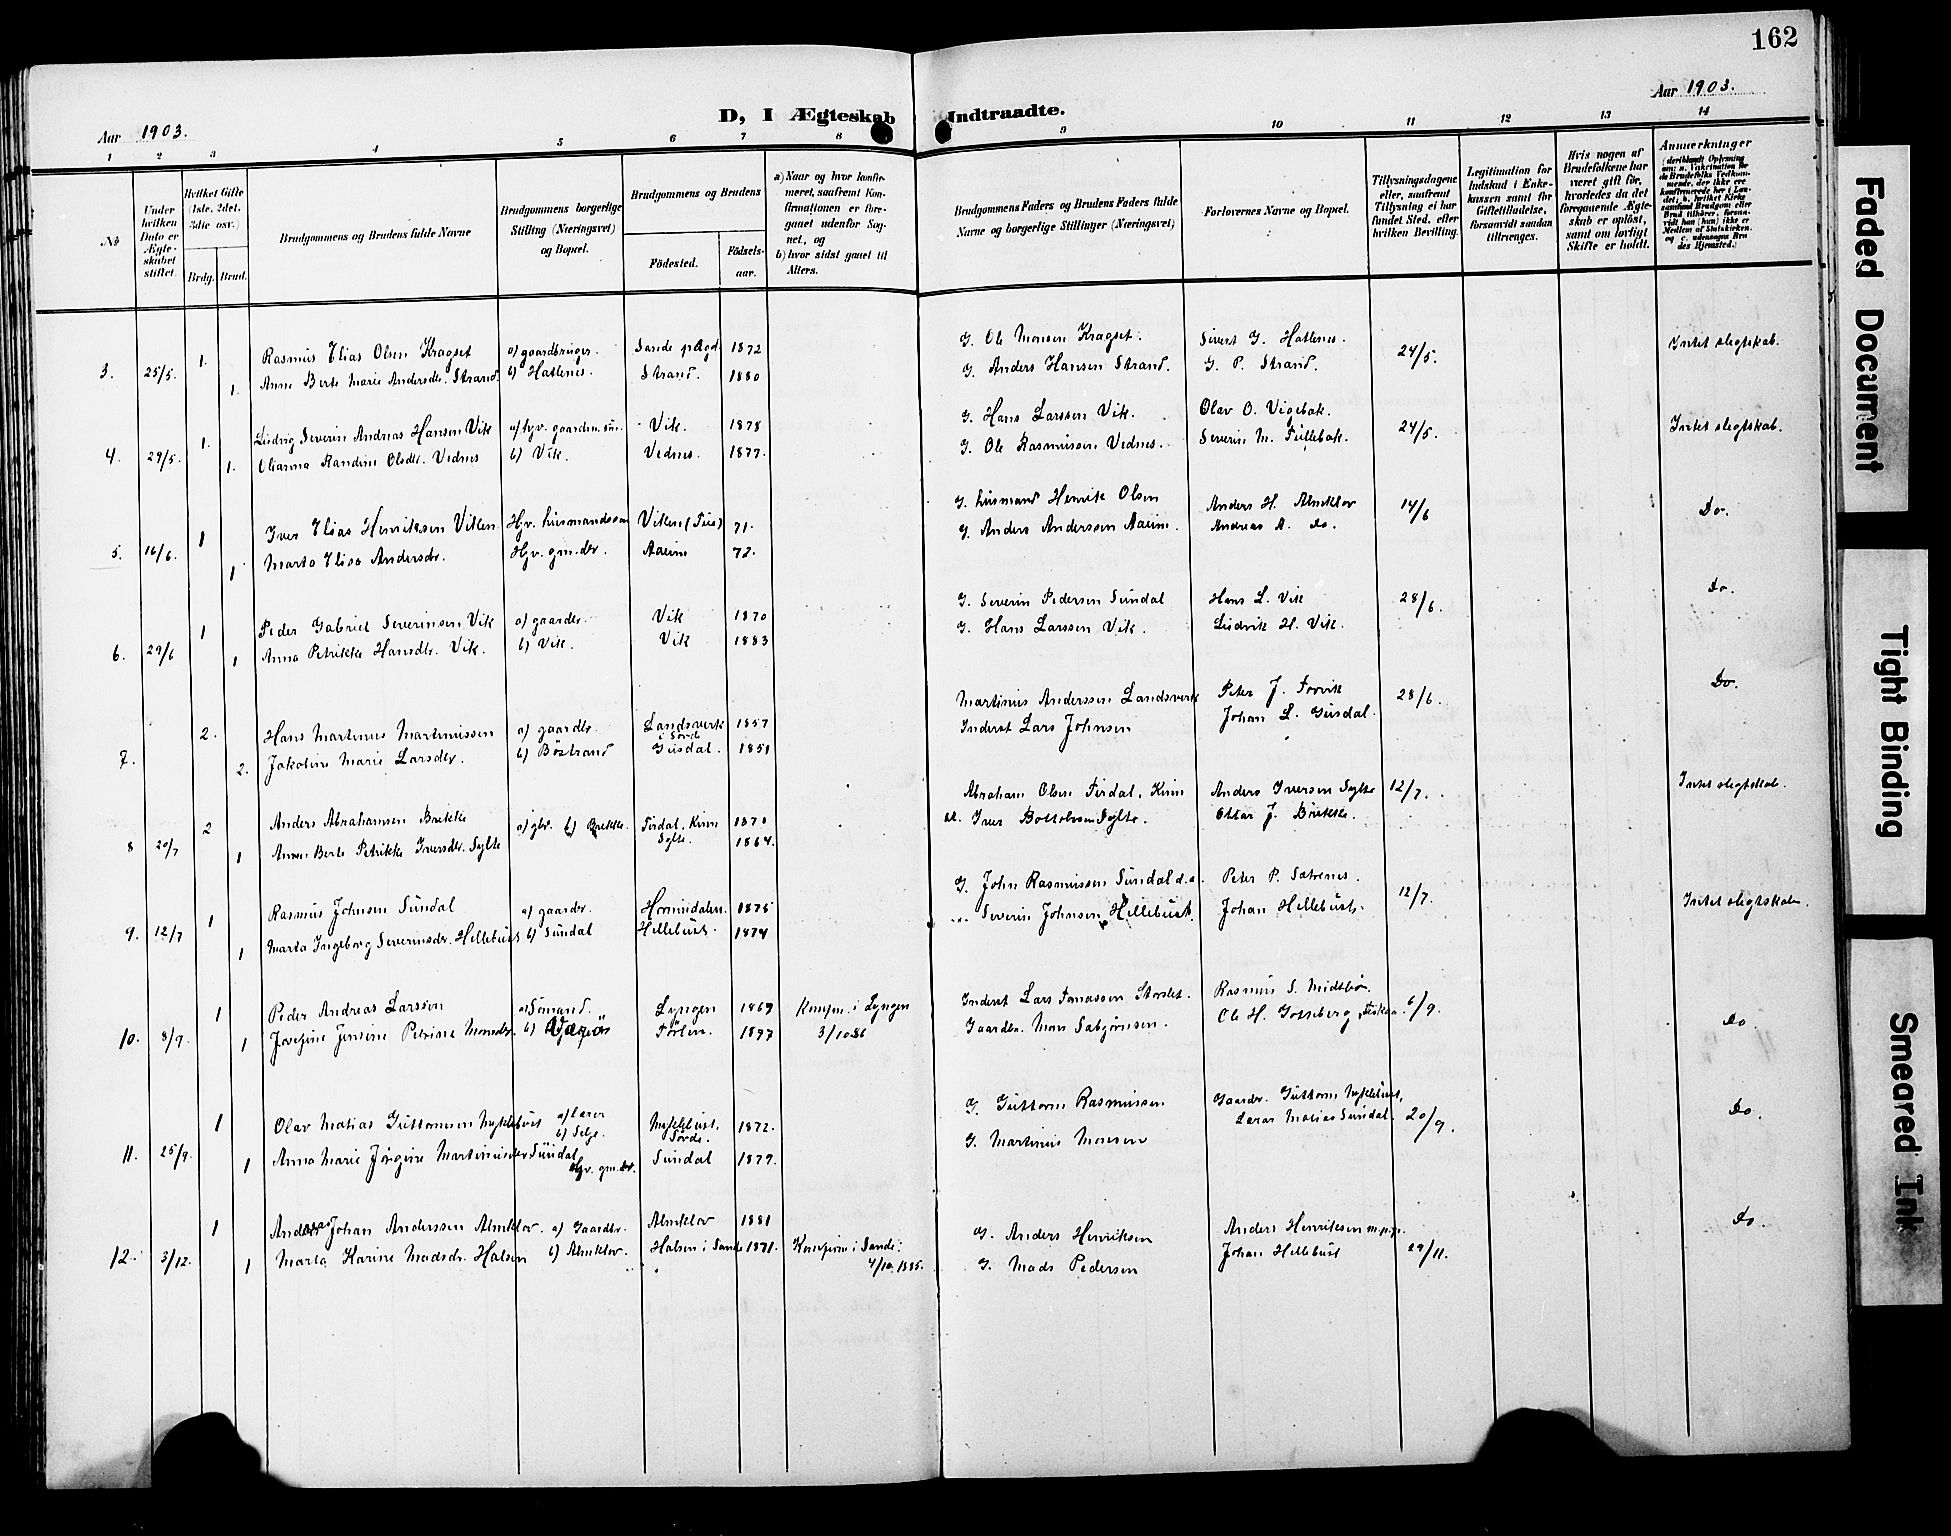 162
Aar 1903.
D, I Ægteskab Indtraadte.
Aar 1903.
1 2 3 4 5 6 7 8 9 10 11 12 13 14
No
Under hvilken Dato er Ægteskabet stiftet.
Hvilket Gifte (1ste, 2det, 3die osv.)
Brdg. Brud.
Brudgommens og Brudens fulde Navne
Brudgommens borgerlige Stilling (Næringsvei) og Bopæl.
Brudgommens og Brudens
Födested.
Födselsaar.
a) Naar og hvor konfirmeret, saafremt Konfirmationen er foregaaet udenfor Sognet, og
b) hvor sidst gaaet til Alters.
Brudgommens Faders og Brudens Faders fulde Navne og borgerlige Stillinger (Næringsvei)
Forlovernes Navne og Bopæl.
Tillysningsdagene eller, saafremt Tillysning ei har fundet Sted, efter hvilken Bevilling.
Legitimation for Indskud i Enkekassen samt for Giftetilladelse, forsaavidt saadan tiltrænges.
Hvis nogen af Brudefolkene har været gift för, hvorledes da det foregaaende Ægteskab er oplöst, samt om lovligt Skifte er holdt.
Anmærkninger
3. 25/5. 1. Rasmus Elias Olsen Kragset a) gaardbruger. Sande pgd. 1872 G. Ole Monsen Kragset. Sivert G. Hatlenes. 24/5. Intet slegtskab.
1. Anne Berte Marie Andersdtr. Strand. b) Hatlenes. Strand. 1880 G. Anders Hansen Strand. G. P. Strand.
4. 29/5. 1. Ludvig Severin Andreas Hansen Vik a) hjv. gaardm.sön. Vik. 1878 G. Hans Larssen Vik. Olav O. Vigebak. 24/5. Intet slegtskab.
1. Olianna Randine Olsdtr. Vednes b) Vik. Vednes. 1877. G. Ole Rasmussen Vednes. Severin M. Tullebak.
5. 16/6. 1 Iver Elias Henriksen Viken Hjv. husmandssøn Viken 71. G. husmand Henrik Olsen Anders H. Almklov 14/6 Do.
1 Marta Elisa Andersdtr. Hjv. gm.dtr. Aaeim 72. G. Anders Anderssen Aaeim. Andreas A. do.
6. 29/6 1 Peder Gabriel Severinsen Vik a) gaardbr. Vik 1870 G. Severin Pedersen Sundal Hans L. Vik 28/6. Do.
1 Anna Petrikke Hansdtr. Vik. b) Vik. Vik 1883 G. Hans Larssen Vik. Ludvik H. Vik.
7. 2. Hans Martinus Martinussen a) gaardbr. Landsverk i Sørde 1857 Martinus Anderssen Landsverk Peter J. Förvik 28/6. Do.
2. Jakobine Marie Larsdtr. b) Böstrand Gusdal. 1851 Inderst Lars Johnsen Johan L. Gusdal.
8 20/7 2 Anders Abrahamsen Brekke a) gbr. b) Brekke. Firdal, Kinn 1870 Abraham Olsen Firdal, Kinn Anders Iversen Sylte 12/7. Intet slegtskab.
1 Anne Berte Petrikke Iversdtr. Sylte Sylte. 1864. Iver Bottolvsen Sylte. Ottar J. Brekke.
9. 12/7 1 Rasmus Johnsen Sundal a) gaardbr. Hornindalen. 1875 G. John Rasmussen Sundal Peter P. Sætrenes. 12/7. Intet slegtskab.
1 Marta Ingeborg Severinsdtr. Hellebust b) Sundal Hellebust. 1874 Severin Johnsen Hellebust. Johan Hellebust.
10. 8/9. 1 Peder Andreas Larssen a) Sömand. Lyngen 1869 Konfirm. i Lyngen Inderst Lars Tomassen Storslet. Rasmus S. Midtbö. 6/9.
1 Josefine Jensine Petrine Monsdtr. b) Vaagsö 1877 3/10 86 Gaardbr. Mons Sabjörnsen. Ole H. Gotteberg, Do
11. 25/9. 1 Olav Matias Guttormsen Myklebust a) Lærer b) Selje. Myklebust. Sörde. 1872. G. Guttorm Rasmussen Gaardbr. Guttorm Myklebust, 20/9. Do.
1 Anna Marie Jörgine Martinusdtr Sundal Hjv. gm.dtr. Sundal 1879. G. Martinus Monsen Lærer Matias Sundal
12. 3/12. 1 Andreas Johan Anderssen Almklov. a) Gaardbr. Almklov 1881 G. Anders Henriksen Anders Henriksen m.p.p. 29/11. Do.
1 Marta Karine Madsdr. Halsen b) Almklov. Halsen i Sande 1871. Konfirm i Sande. 4/10. 1885. G. Mads Pedersen Johan Hellebust
Faded Document
Tight Binding
Smeared Ink